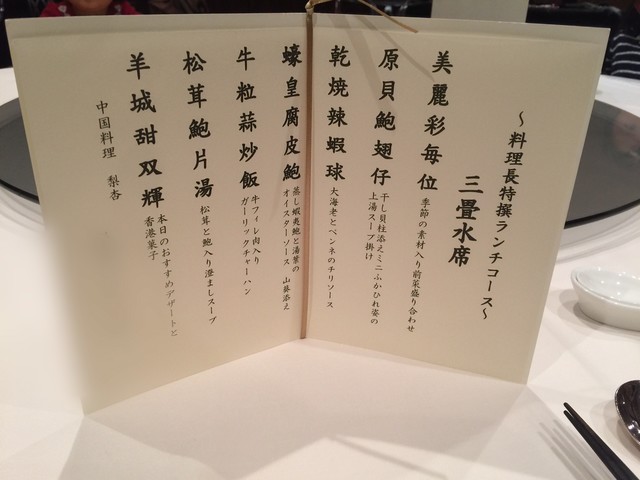 ~料理長特撰ランチコース~
三畳水席
美麗彩每位
季節の素材入り前菜盛り合わせ
原貝鮑翅仔
干し貝柱添えミニふかひれ姿の
上湯スープ掛け
乾焼辣蝦球
大海老とペンネのチリソース
蠔皇腐皮鮑
蒸し蝦夷鮑と湯葉の
オイスターソース 山葵添え
牛粒蒜炒飯
牛フィレ肉入り
ガーリックチャーハン
松茸鮑片湯
松茸と鮑入り澄ましスープ
羊城甜双輝
本日のおすすめデザートと
香港菓子
中国料理 梨杏